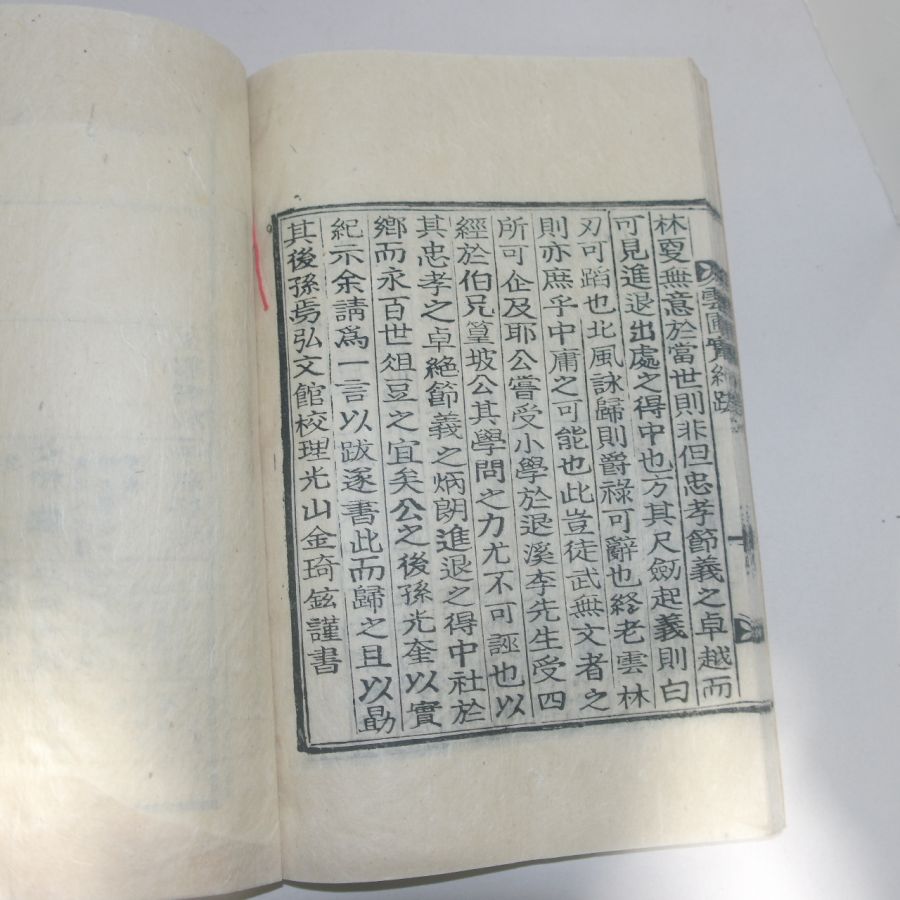 林夏無意於當世則非但忠孝節義之卓越而
可見進退出處之得中也方其尺劒起義則白
刃可蹈也北風詠歸則爵祿可辭也終老雲林
則亦庶乎中庸之可能也此豈徒武無文者之
所可企及耶公嘗受小學於退溪李先生受四
經於伯兄篁坡公其學問之力尤不可誣也以
其忠孝之卓絶節義之炳朗進退之得中社於
鄕而永百世俎豆之宜矣公之後孫光奎以實
紀示余請爲一言以跋遂書此而歸之且以勗
其後孫焉弘文館校理光山金琦鉉謹書